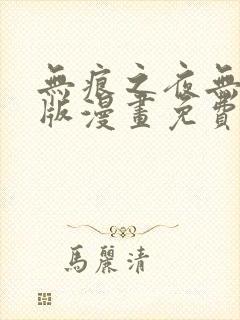 無痕之夜無
版漫畫免費
馬麗清